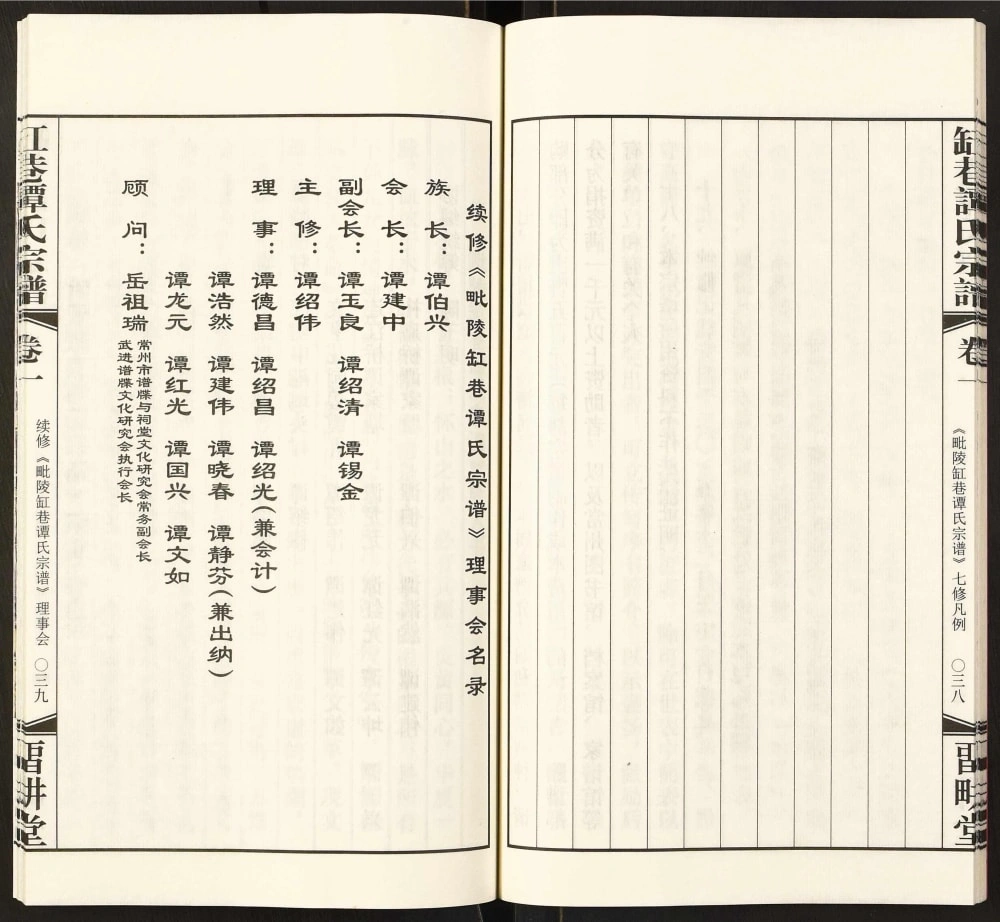 缸巷谭氏宗谱
卷一
《毗陵缸巷谭氏宗谱》七修凡例
〇三八
续修《毗陵缸巷谭氏宗谱》理事会名录
族长：谭伯兴
会长：谭建中
副会长：谭玉良 谭绍清 谭锡金
主修：谭绍伟
理事：谭德昌 谭绍昌 谭绍光(兼会计)
谭浩然 谭建伟 谭晓春 谭静芬(兼出纳)
谭龙元 谭红光 谭国兴 谭文如
顾问：岳祖瑞
常州市谱牒与祠堂文化研究会常务副会长
武进谱牒文化研究会执行会长
缸巷谭氏宗谱
卷一
续修《毗陵缸巷谭氏宗谱》理事会
〇三九